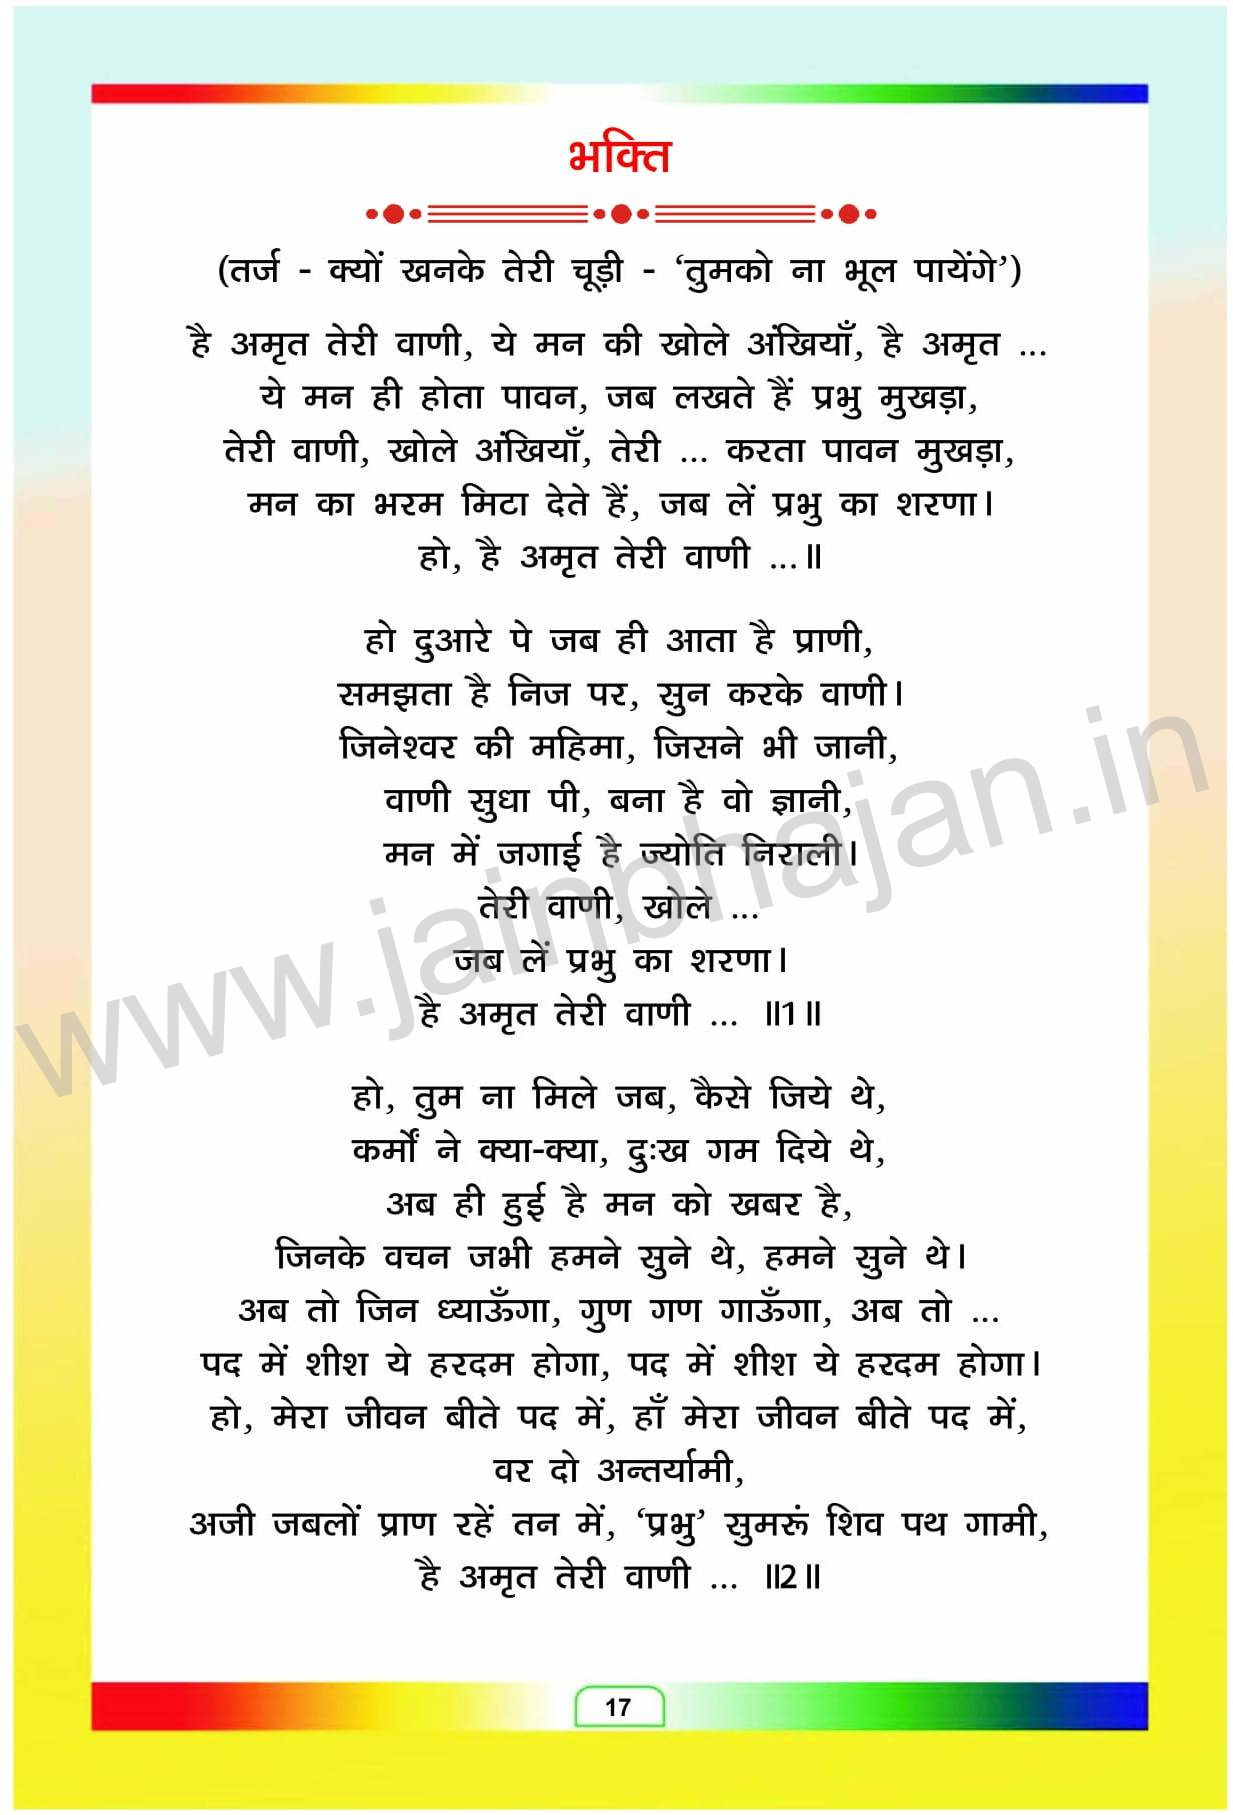 भक्ति
(तर्ज - क्यों खनके तेरी चूड़ी - ‘तुमको ना भूल पायेंगे’)
है अमृत तेरी वाणी, ये मन की खोले अंखियाँ, है अमृत ...
ये मन ही होता पावन, जब लखते हैं प्रभु मुखड़ा,
तेरी वाणी, खोले अंखियाँ, तेरी ... करता पावन मुखड़ा,
मन का भरम मिटा देते हैं, जब लें प्रभु का शरणा।
हो, है अमृत तेरी वाणी ...॥
हो दुआरे पे जब ही आता है प्राणी,
समझता है निज पर, सुन करके वाणी।
जिनेश्वर की महिमा, जिसने भी जानी,
वाणी सुधा पी, बना है वो ज्ञानी,
मन में जगाई है ज्योति निराली।
तेरी वाणी, खोले ...
जब लें प्रभु का शरणा।
है अमृत तेरी वाणी ... ॥1॥
हो, तुम ना मिले जब, कैसे जिये थे,
कर्मों ने क्या-क्या, दुःख गम दिये थे,
अब ही हुई है मन को खबर है,
जिनके वचन जभी हमने सुने थे, हमने सुने थे।
अब तो जिन ध्याऊँगा, गुण गण गाऊँगा, अब तो ...
पद में शीश ये हरदम होगा, पद में शीश ये हरदम होगा।
हो, मेरा जीवन बीते पद में, हाँ मेरा जीवन बीते पद में,
वर दो अन्तर्यामी,
अजी जबलों प्राण रहें तन में, ‘प्रभु’ सुमरूं शिव पथ गामी,
है अमृत तेरी वाणी ... ॥2॥
17
www.jainbhajan.in